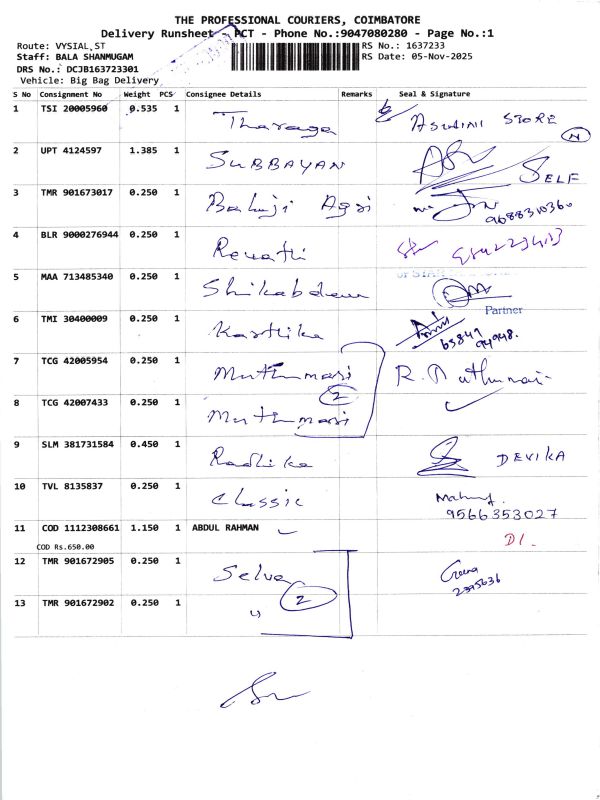 THE PROFESSIONAL COURIERS, COIMBATORE
Delivery Runsheet - PCT - Phone No.:9047080280 - Page No.:1
Route: VYSIAL ST RS No.: 1637233
Staff: BALA SHANMUGAM RS Date: 05-Nov-2025
DRS No.: DCJB163723301
Vehicle: Big Bag Delivery
S No Consignment No Weight PCS Consignee Details Remarks Seal & Signature
1 TSI 20005960 0.535 1 Tharaga ASWINI STORE
2 UPT 4124597 1.385 1 SUBBAYAN SELF
3 TMR 901673017 0.250 1 Balaji Agri
9688310360
4 BLR 9000276944 0.250 1 Revathi
5 MAA 713485340 0.250 1
Partner
6 TMI 30400009 0.250 1 Karthika
7 TCG 42005954 0.250 1 Muthumari
2
8 TCG 42007433 0.250 1 Muthumari
9 SLM 381731584 0.450 1 Radhika DEVIKA
10 TVL 8135837 0.250 1 Classic
9566353027
11 COD 1112308661 1.150 1 ABDUL RAHMAN
COD Rs.650.00
12 TMR 901672905 0.250 1 Selva
2395636
2
13 TMR 901672902 0.250 1 "